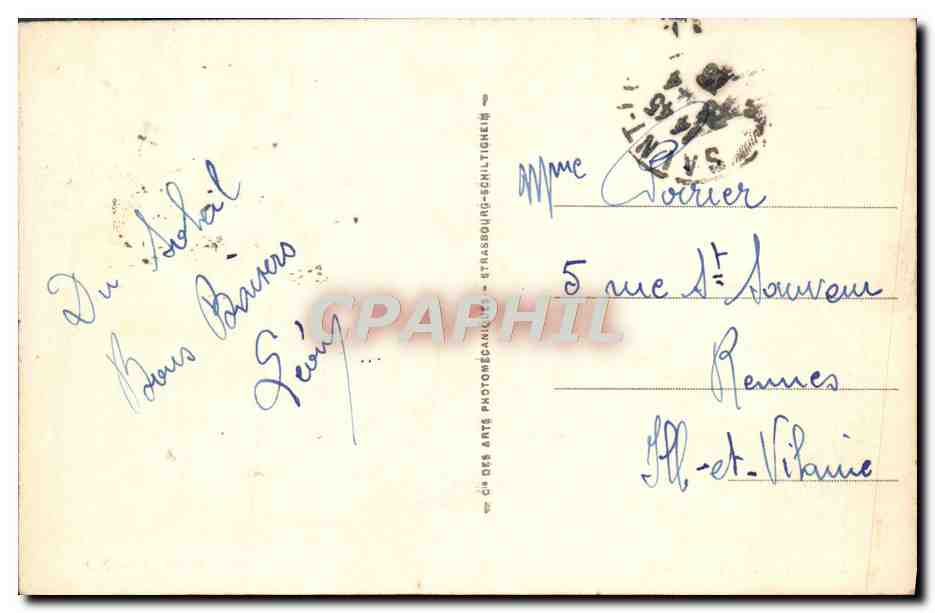 Du Soleil
Bons Baisers
Cie DES ARTS PHOTOMÉCANIQUES - STRASBOURG-SCHILTIGHEIM
SAINT-
Mme Poirier
5 rue St Sauveur
Rennes
Ill-et-Vilaine
CPAPHIL